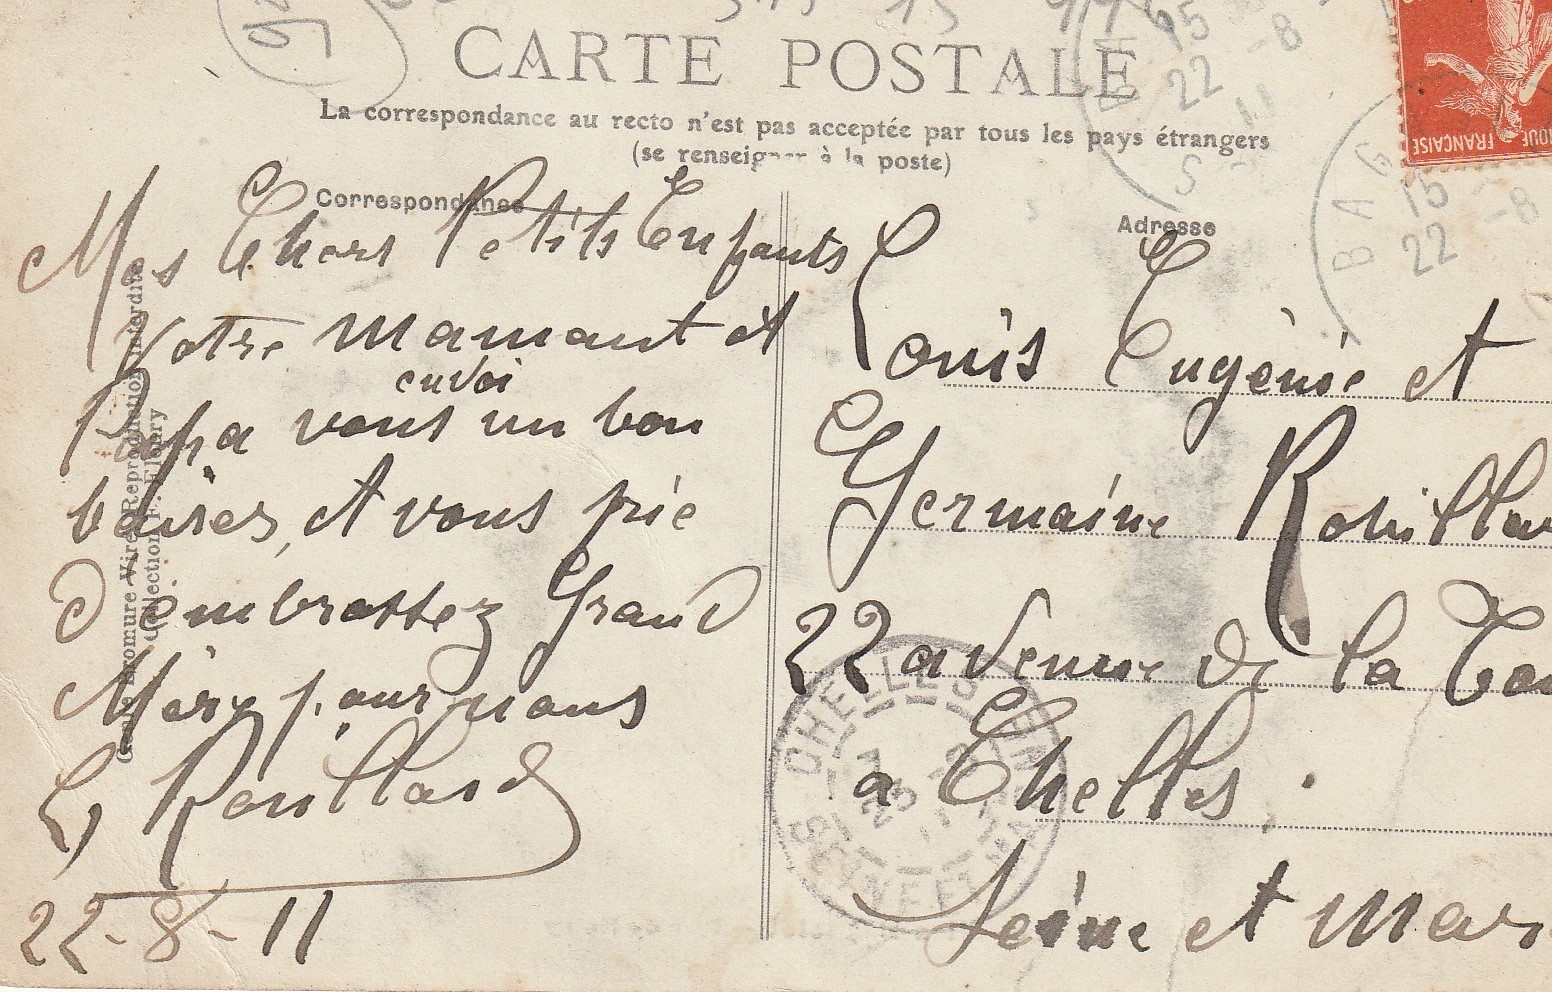 CARTE POSTALE
La correspondance au recto n'est pas acceptée par tous les pays étrangers
(se renseigner à la poste)
Correspondance
Adresse
Mes Chers Petits Enfants
Votre mamant et
envoi
Papa vous un bon
baiser, et vous prie
D'embrassez Grand
Mère pour nous
L, Rouillard
22-8-11
Louis Eugènie et
Germaine Robillar
22 avenue de la
a Chelles
Seine et Mar
CHELLES
SEINE ET
23
15
22
-8
11
BAG
15
22
-8
FRANÇAISE
Bromure Vire Reproduction interdite
Collection F. Fleury